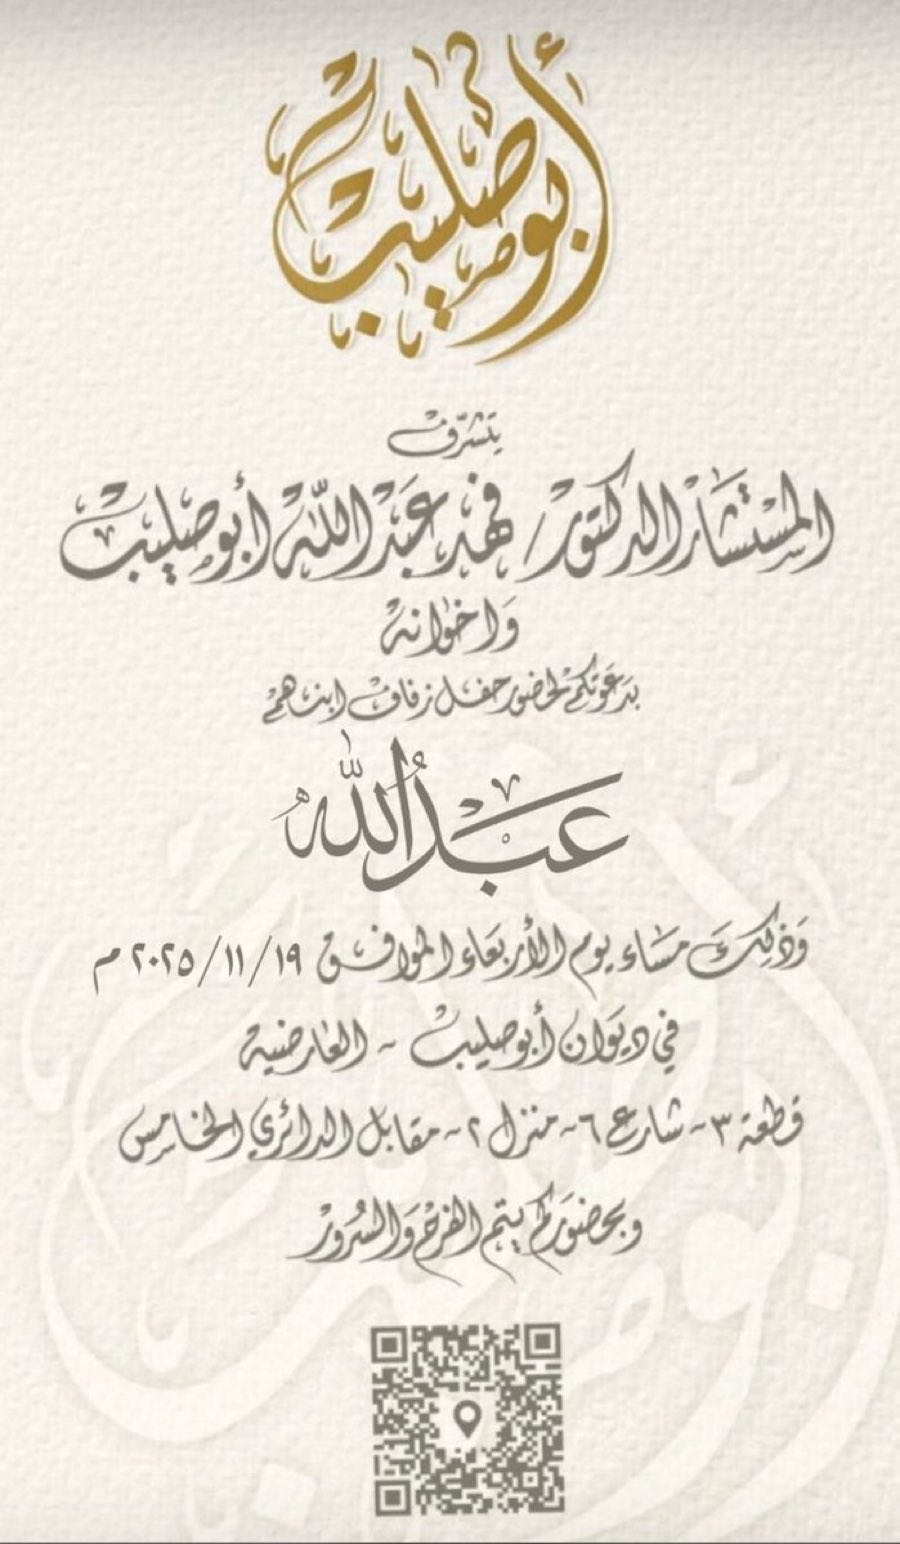 أبو صليب
يتشرّف
المستشار الدكتور / فهد عبد الله أبو صليب
وإخوانه
بدعوتكم لحضور حفل زفاف ابنهم
عبدالله
وذلك مساء يوم الأربعاء الموافق ١٩/ ١١/ ٢٠٢٥ م
في ديوان أبو صليب - العارضية
قطعة ٣ - شارع ٦ - منزل ٢ - مقابل الدائري الخامس
وبحضوركم يتم الفرح والسرور